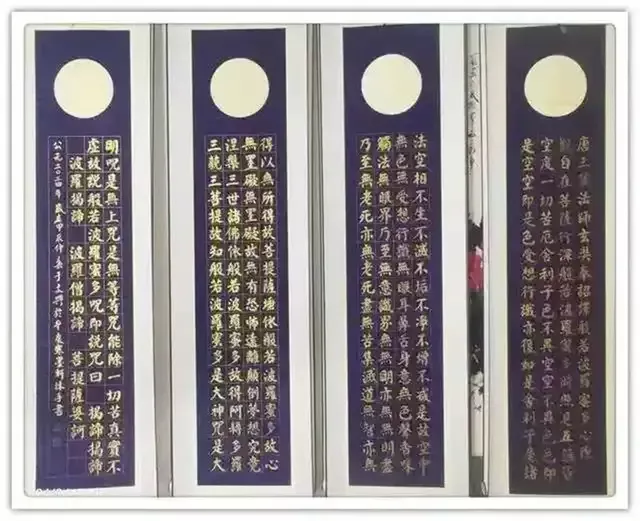 唐三藏法師玄奘奉詔譯般若波羅蜜多心經
觀自在菩薩行深般若波羅蜜多時照見五蘊皆
空度一切苦厄舍利子色不異空空不異色色即
是空空即是色受想行識亦復如是舍利子是諸
法空相不生不滅不垢不淨不增不減是故空中
無色無受想行識無眼耳鼻舌身意無色聲香味
觸法無眼界乃至無意識界無無明亦無無明盡
乃至無老死亦無老死盡無苦集滅道無智亦無
得以無所得故菩提薩埵依般若波羅蜜多故心
無罣礙無罣礙故無有恐怖遠離顛倒夢想究竟
涅槃三世諸佛依般若波羅蜜多故得阿耨多羅
三藐三菩提故知般若波羅蜜多是大神咒是大
明咒是無上咒是無等等咒能除一切苦真實不
虛故說般若波羅蜜多咒即說咒曰 揭諦揭諦
波羅揭諦 波羅僧揭諦 菩提薩婆訶
公元二〇二四年 甲辰仲 墨軒 手書